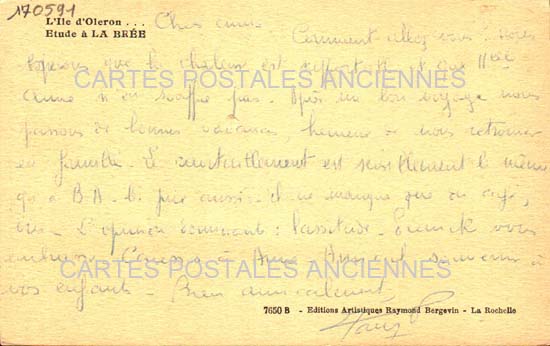 170591
L'Ile d'Oleron . . .
Etude à LA BRÉE
Chers amis
Comment allez vous? nous
espérons que la chaleur est supportable et que
Anne n'en souffre pas. Après un bon voyage nous
passons de bonnes vacances, heureux de nous retrouver
en famille. Le ravitaillement est sensiblement le même
qu'à B.A. le prix aussi. il ne manque que du café,
CARTES POSTALES ANCIENNES
L'opinion dominante : lassitude. vous
embrasse. à Anne. souvenir à
CARTES POSTALES ANCIENNES
vos enfants. Bien amicalement,
7650 B - Editions Artistiques Raymond Bergevin - La Rochelle